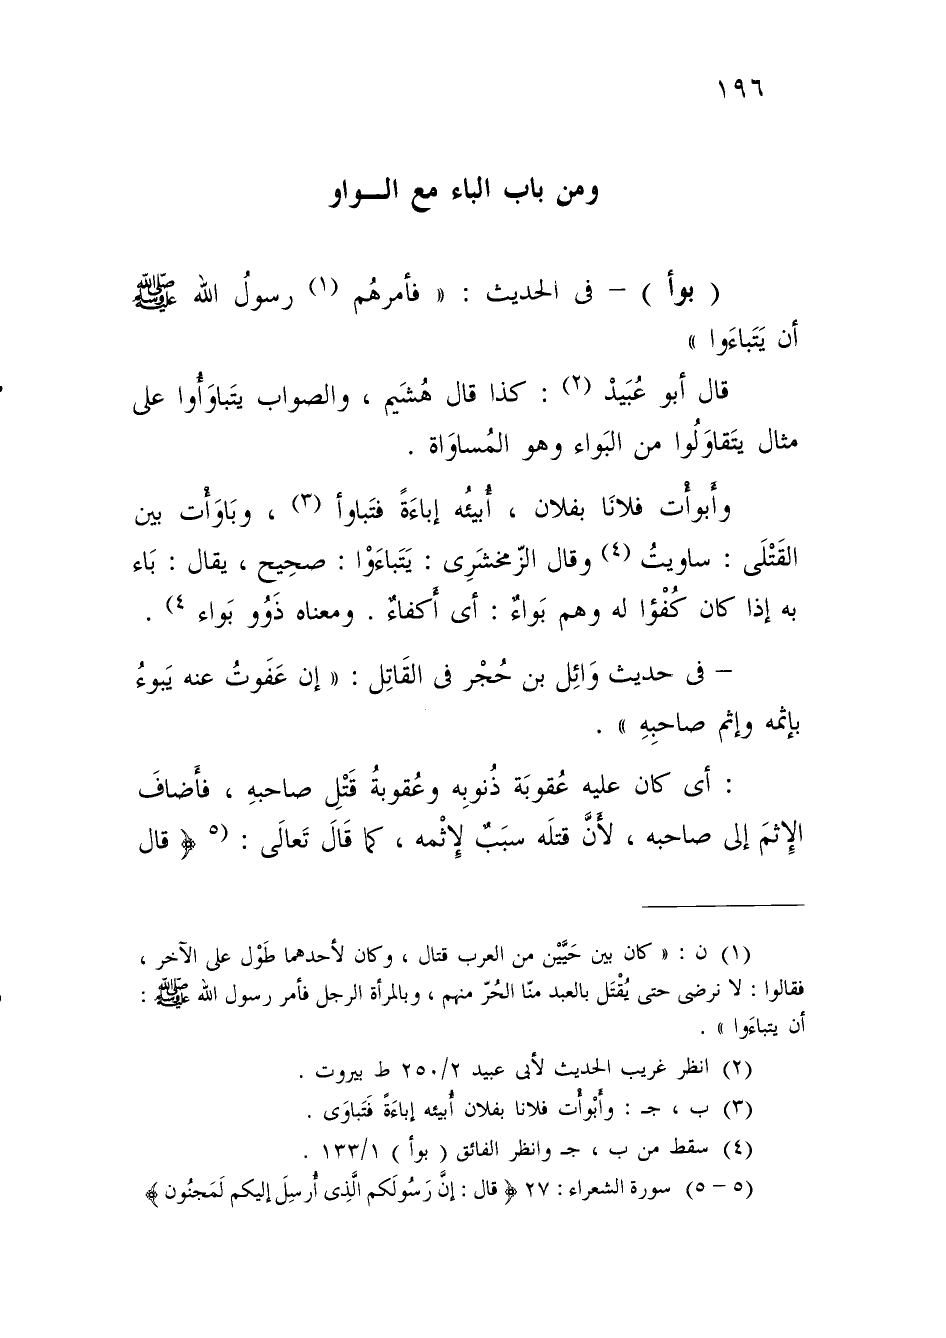 ١٩٦
ومن باب الباء مع الـــواو
( بوأ ) – فى الحديث : « فأمرهُم (١) رسولُ الله ﷺ
أن يَتَباءَوا »
قال أبو عُبَيدْ (٢) : كذا قال هُشَيم ، والصواب يتَباوَأُوا على
مثال يتَقاوَلُوا من البَواء وهو المُساوَاة .
وأَبوأْت فلانَا بفلان ، أُبيئُه إباءَةً فتَباوأ (٣) ، وبَاوَأْت بين
القَتْلَى : ساويتُ (٤) وقال الزّمخشَرِى : يَتَباءَوْا : صحِيح ، يقال : بَاء
به إذا كان كُفْؤا له وهم بَواءٌ : أى أَكفاءٌ . ومعناه ذَوُو بَواء ٤) .
– فى حديث وَائِل بن حُجْر فى القَاتِل : « إن عَفَوتُ عنه يَبوءُ
بإثمه وإثم صاحبِهِ » .
: أى كان عليه عُقوبَة ذُنوبِه وعُقوبةُ قَتْلِ صاحبهِ ، فأَضافَ
الإِثمَ إلى صاحبه ، لأَنَّ قتلَه سبَبٌ لإِثْمه ، كما قَالَ تَعالَى : (٥ ﴿ قال
(١) ن : « كان بين حَيَّيْن من العرب قتال ، وكان لأحدهما طَوْل على الآخر ،
فقالوا : لا نرضى حتى يُقْتَل بالعبد منّا الحُرّ منهم ، وبالمرأة الرجل فأمر رسول الله ﷺ :
أن يتباءَوا » .
(٢) انظر غريب الحديث لأبى عبيد ٢٥٠/٢ ط بيروت .
(٣) ب ، جـ : وأَبْوأْت فلانا بفلان أُبيئه إباءَةً فَتَباوَى .
(٤) سقط من ب ، جـ وانظر الفائق ( بوأ ) ١٣٣/١ .
(٥ – ٥) سورة الشعراء : ٢٧ ﴿ قال : إنَّ رَسُولَكم الَّذِى أُرسِلَ إليكم لَمَجنُون ﴾